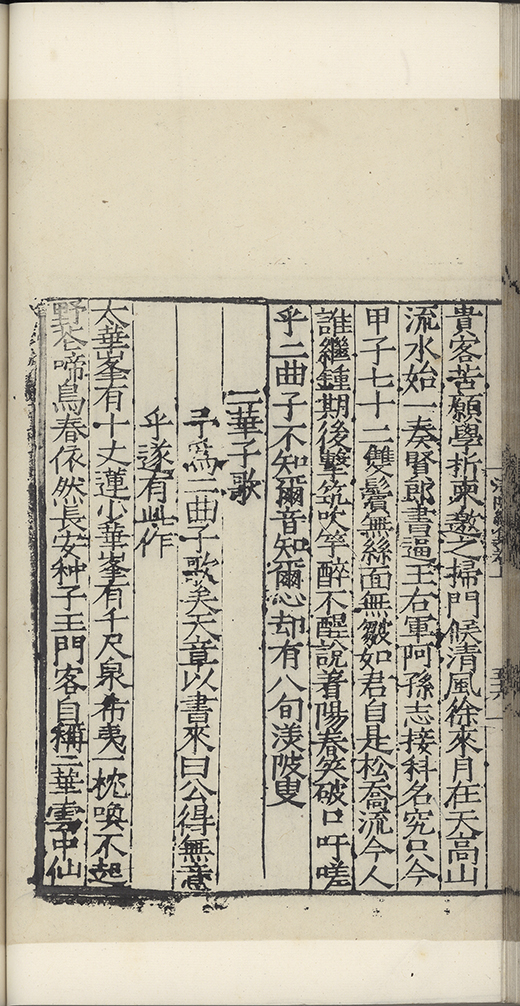 貴客苦願學折柬邀之掃門候清風徐來月在天高山
流水始一奏賢郎書逼王右軍阿孫志接科名究只今
甲子七十二雙鬢無絲面無皺如君自是松喬流今人
誰繼鍾期後擊筑吹竽醉不醒說著陽春笑破口吁嗟
乎二曲子不知爾音知爾心却有八旬渼陂叟
二華子歌
予爲二曲子歌矣天章以書來曰公得無意
乎遂有此作
太華峯有十丈蓮少華峯有千尺泉希夷一枕喚不起
野花啼鳥春依然長安种子王門客自稱二華雲中仙